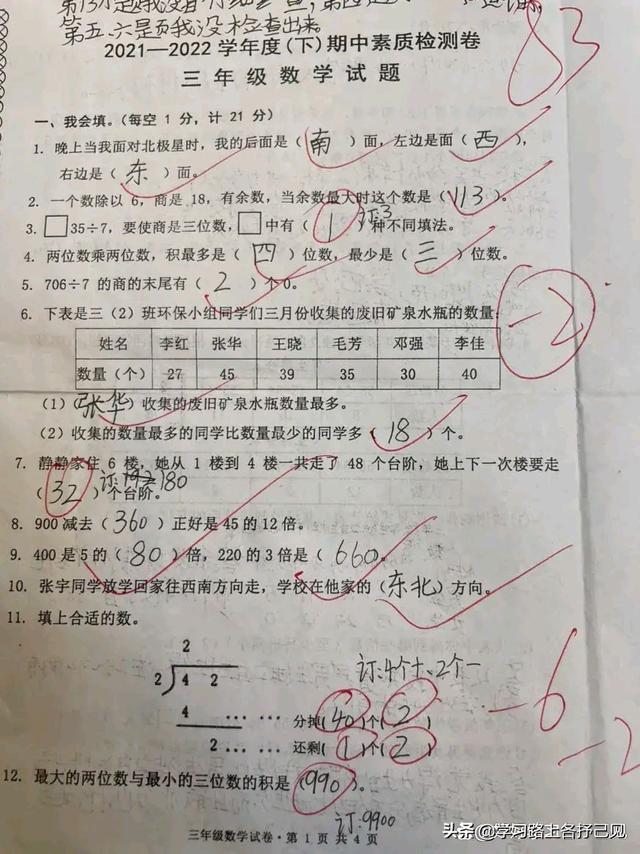 第五、六是页我没检查出来。
83
2021—2022 学年度(下)期中素质检测卷
三 年 级 数 学 试 题
一、我会填。(每空 1 分,计 21 分)
1. 晚上当我面对北极星时,我的后面是( 南 )面,左边是面( 西 ),
右边是( 东 )面。
2. 一个数除以 6,商是 18,有余数,当余数最大时这个数是( 113 )。
订:3
3. □35÷7,要使商是三位数,□中有( 1 )种不同填法。
4. 两位数乘两位数,积最多是( 四 )位数,最少是( 三 )位数。
5. 706÷7 的商的末尾有( 2 )个 0。
6. 下表是三(2)班环保小组同学们三月份收集的废旧矿泉水瓶的数量:
-2
姓名 李红 张华 王晓 毛芳 邓强 李佳
数量(个) 27 45 39 35 30 40
(1)( 张华 )收集的废旧矿泉水瓶数量最多。
(2)收集的数量最多的同学比数量最少的同学多( 18 )个。
7. 静静家住 6 楼,她从 1 楼到 4 楼一共走了 48 个台阶,她上下一次楼要走
( 32 )个台阶。
8. 900 减去( 360 )正好是 45 的 12 倍。
9. 400 是 5 的( 80 )倍,220 的 3 倍是( 660 。
10. 张宇同学放学回家往西南方向走,学校在他家的(东北)方向。
11. 填上合适的数。
2
2 4 2
订:4个十、2个一
4 … … 分掉( 40 )个( 2 )
-6
2 … … 还剩( 1 )个( 2 )
-2
12. 最大的两位数与最小的三位数的积是( 990 )。
订:9900
三年级数学试卷·第 1 页 共 4 页
头条 @学习路上各抒己见